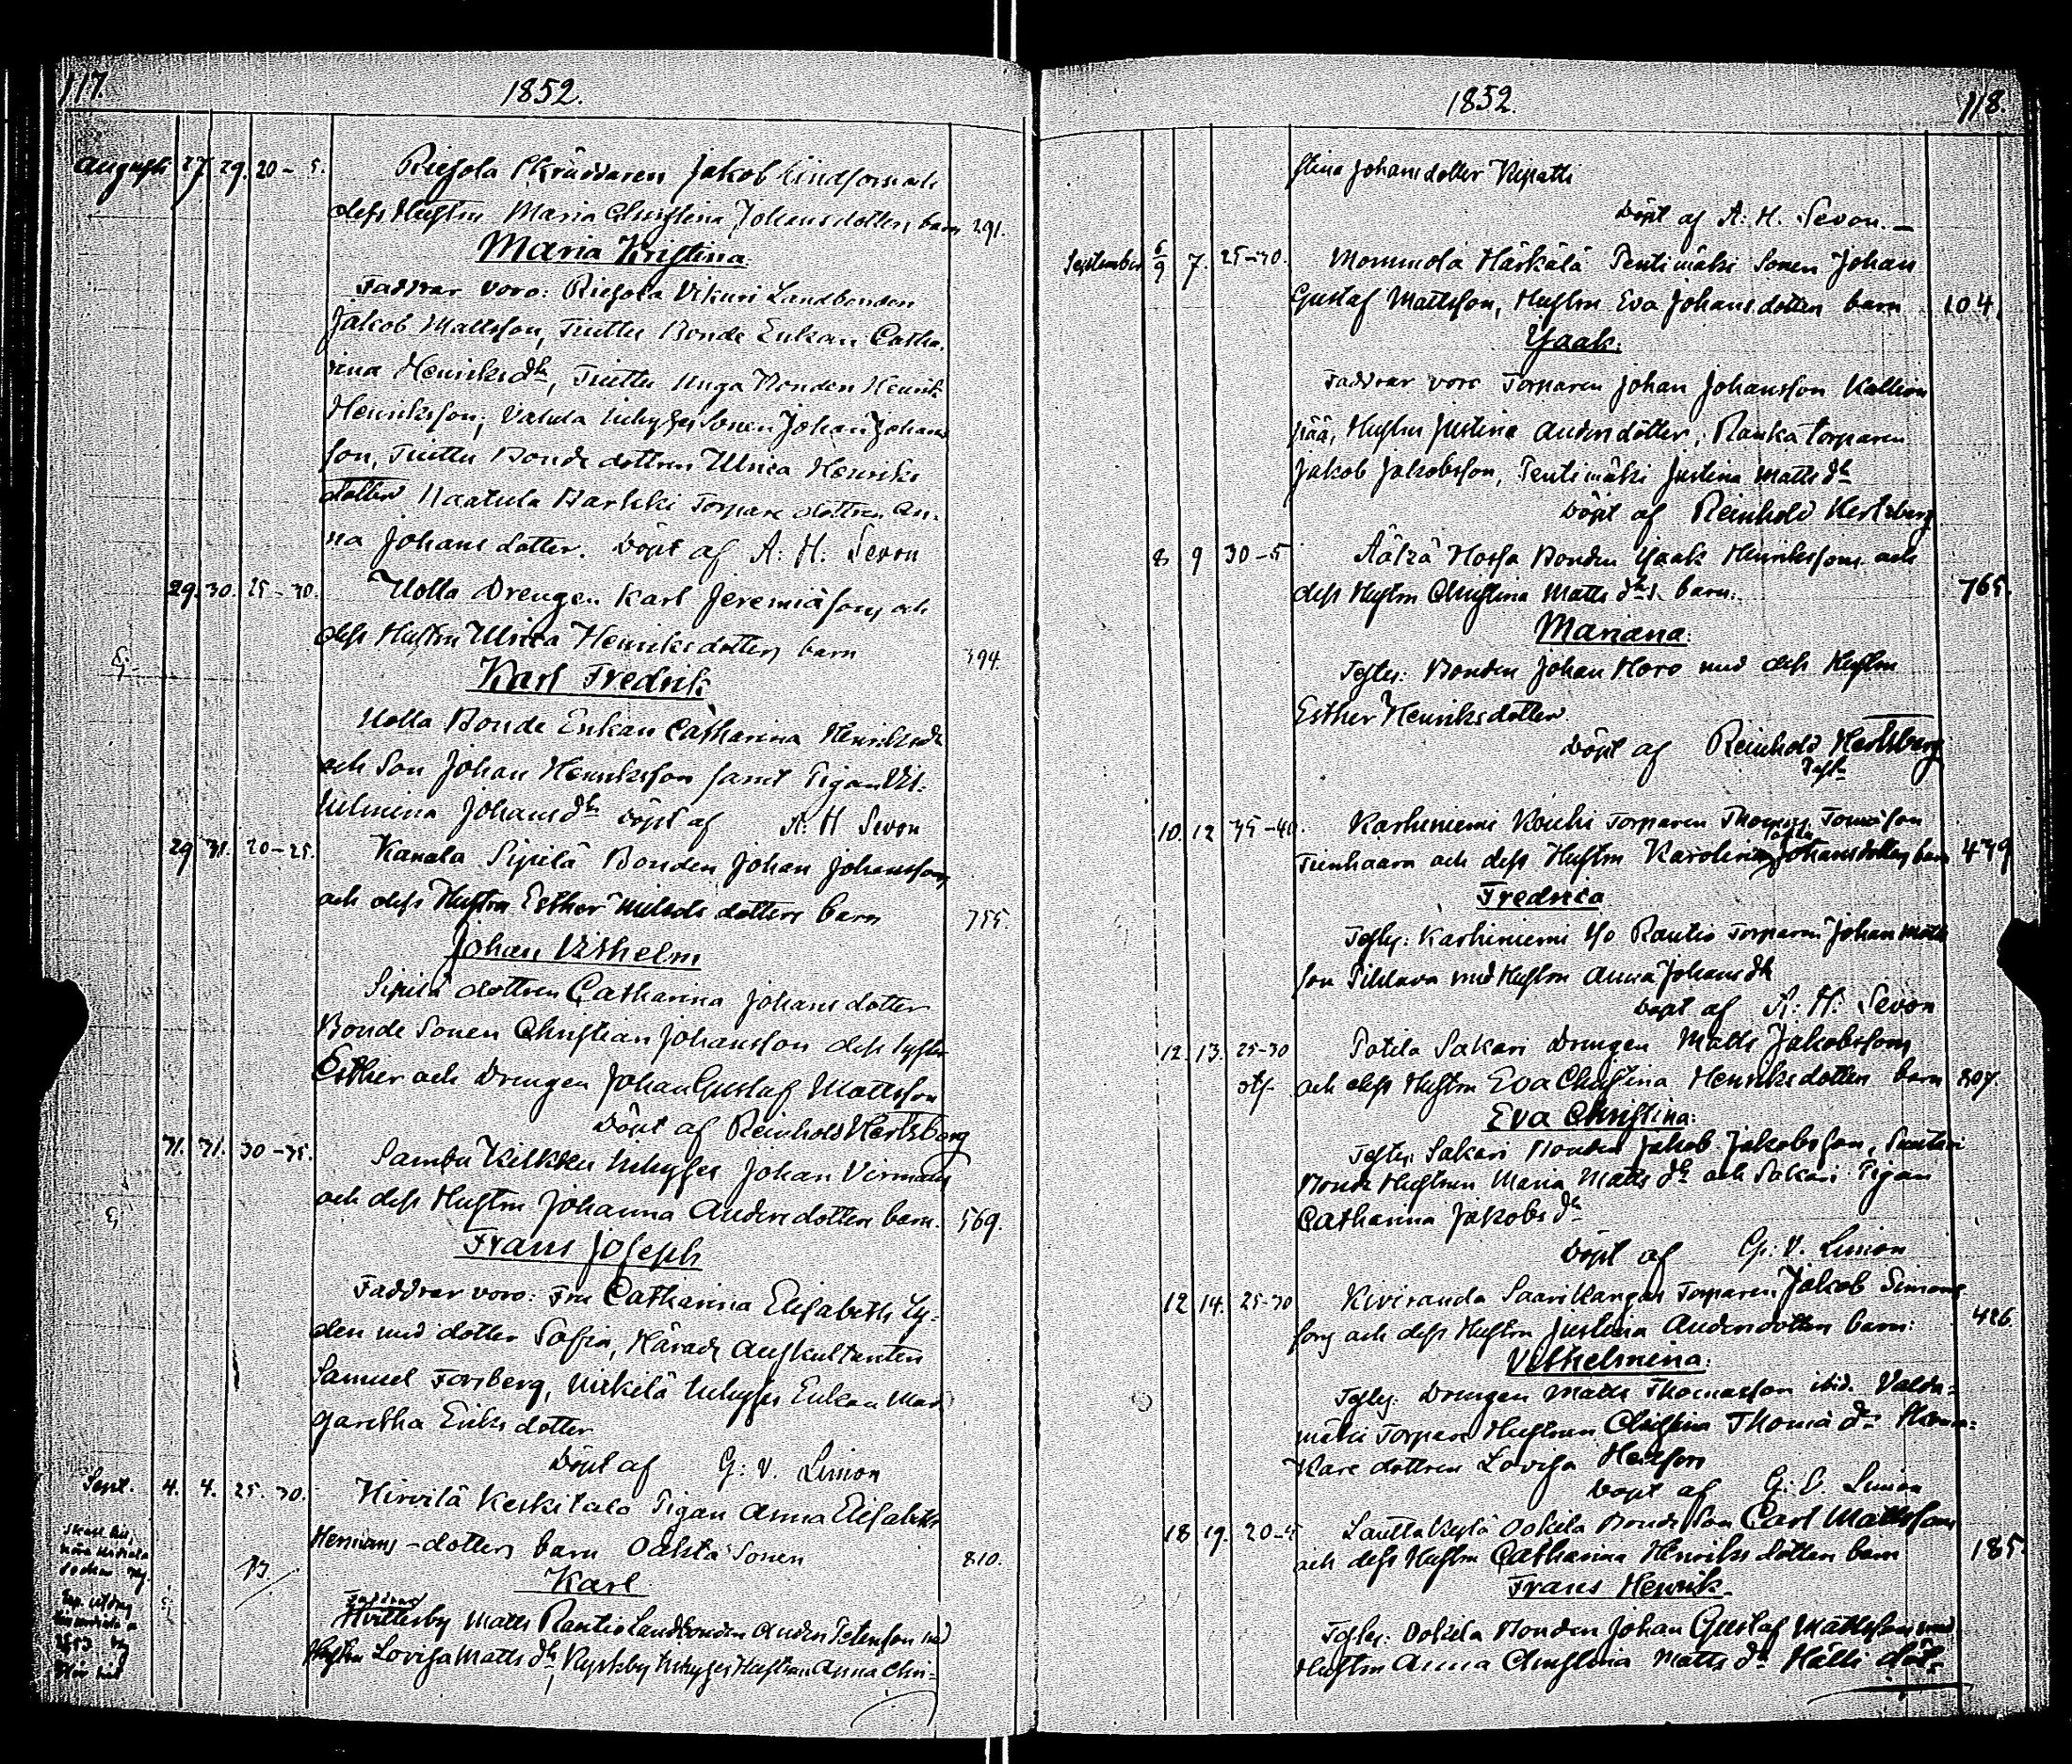 117.
1852.
Augusti 27. 29. 20-5. Riesola Skräddaren Jakob Lindfors och
dess Hustru Maria Christina Johansdotters barn 291.
Maria Kristina.
Faddrar voro: Riesola Vikuri Landbonden
Jakob Mattsson, Tuittu Bonde Enkan Catha-
rina Henriksdr, Tuittu Unga Bonden Henrik
Henriksson, Inhyses Sonen Johan Johans
son, Tuittu Bonde dottren Ulrica Henriks
dotter Torpare dottren An-
na Johans dotter. Döpt af A: H: Sevon
29. 30. 25-30. Uolla Drengen Karl Jeremiäsons och
dess Hustru Ulrica Henriksdotters barn 394.
Karl Fredrik
Uolla Bonde Enkan Catharina Henriksdr
och Son Johan Henriksson samt Pigan Vil-
helmina Johansdr Döpt af A: H Sevon
29 31. 20-25. Kanala Sipilä Bonden Johan Johanssons
och dess Hustru Esther dotters barn 755.
Johan Vilhelm
Sipilä dottren Catharina Johans dotter
Bonde Sonen Christian Johansson dess syster
Esther och Drengen Johan Gustaf Mattsson
Döpt af Reinhold Hertzberg
31. 31. 30-35. Sambu Inhyses Johan Virmans
och dess Hustru Johanna Anders dotters barn. 569.
Frans Joseph
Faddrar voro: Fru Catharina Elisabeth Ly-
den med dotter Sofia, Härads Auskultanten
Samuel Forsberg, Inhyses Enkan Mar
garetha Eriks dotter
Döpt af G: V. Limon
Sept. 4. 4. 25. 30. Hirvelä Keskitalo Pigan Anna Elisabeth
Hermans-dotters barn Oäkta Sonen 810.
Karl
Faddrar
Hvittisby Matts Rantio Landbonden Anders Petersson med
Hustru Lovisa Matts dr, Inhyses Hustrun Anna Chri-
1852.
118.
stina Johansdotter
Döpt af A: H. Sevon. —
September 5/9 7. 25-30. Mommola Härkälä Pentimäki Sonen Johan
Gustaf Mattsson, Hustru Eva Johans dotters barn 104.
Isaak.
Faddrar voro Torparen Johan Johansson Kallion
pää, Hustru Justina Anders dotter, Ranka torparen
Jakob Jakobsson, Pentimäki Justina Matts dr
Döpt af Reinhold Hertzberg
8 9 30-5 Bonden Isaak Henrikssons och
dess Hustru Christina Matts drs. barn. 765.
Mariana.
Testes: Bonden Johan Horo med dess Hustru
Esther Henriksdotter
Döpt af Reinhold Hertzberg
10. 12 35-40. Karhiniemi Kouhi Torparen Thomas Tomasson
Tienhaara och dess Hustru Karolina Johansdotters barn 439
Fredrica
Testes: Karhiniemi Yo Rautio Torparen Johan Matts
son Pihlava med Hustru Anna Johans dr
Döpt af A: H: Sevon
12. 13. 25-30 Potila Sakari Drengen Matts Jakobssons
och dess Hustru Eva Christina Henriksdotters barn 807.
Eva Christina.
Testes: Sakari Bonden Jakob Jakobsson,
Bonde Hustrun Maria Matts dr och Sakari Pigan
Catharina Jakobs dr
Döpt af G: V. Limon
12 14. 25-30 Kiviranda Saarikangas Torparen Jakob Simons
sons och dess Hustru Justina Anders dotters barn: 426
Vilhelmina.
Testes: Drengen Matts Thomasson ibid.
mäki Torpare Hustrun Christina Thomä dr
kare dottren Lovisa
Döpt af G: V. Limon
18 19. 20-5 Lauttakylä Ookila Bonde Son Carl Mattssons
och dess Hustru Catharina Henriks dotters barn 185.
Frans Henrik.
Testes: Ookila Bonden Johan Gustaf Mattsson med
Hustru Anna Christina Matts dr Hälli